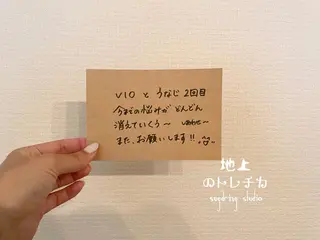 VIO と うなじ 2回目
今までの悩みが どんどん
消えていくう〜 しあわせ〜
また、お願いします!!
地上
のトレチカ